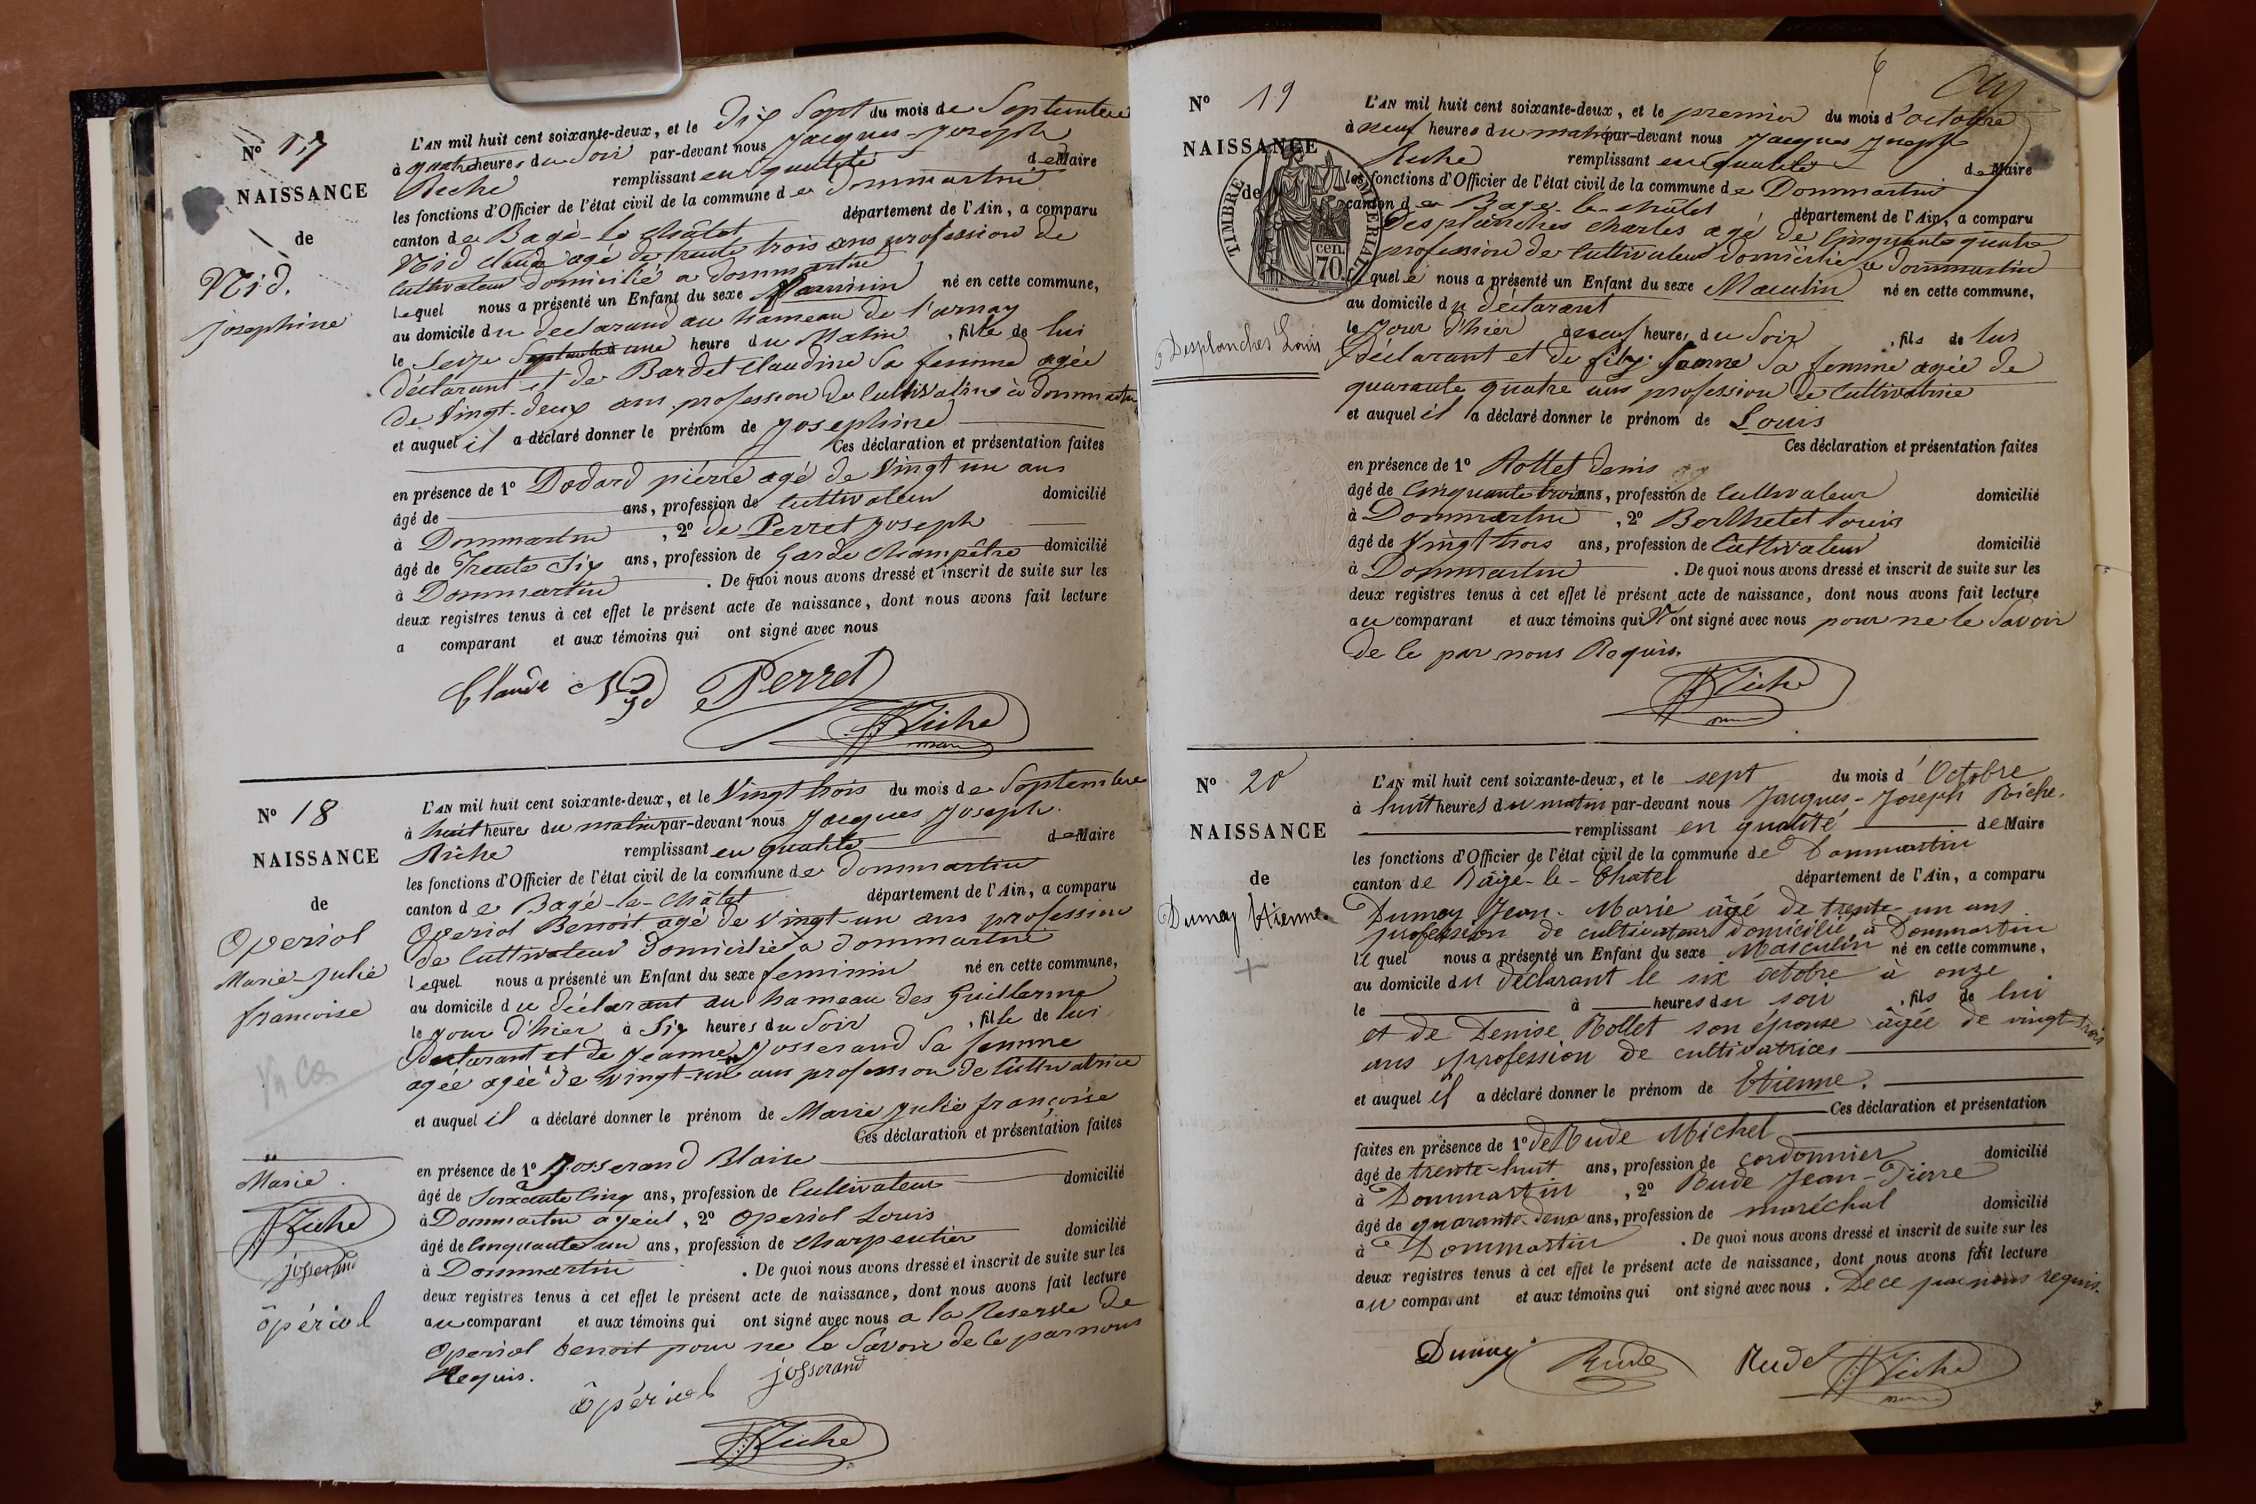 N° 17
NAISSANCE
de
Nid.
Josephine
L'AN mil huit cent soixante-deux, et le Dix Sept du mois de Septembre
à quatre heures du Soir par-devant nous Jacques-Joseph
Riche remplissant en qualité de Maire
les fonctions d'Officier de l'état civil de la commune de Dommartin
canton de Bagé-le-Châtel département de l'Ain, a comparu
Nid Claude agé de trente trois ans profession de
Cultivateur domicilié a Dommartin
Lequel nous a présenté un Enfant du sexe né en cette commune,
au domicile du declarand au hameau de
le Seize Septembre une heure du Matin , fille de lui
déclarant et de Bardet Claudine Sa femme agée
de Vingt-deux ans profession de Cultivatrice à Dommartin
et auquel il a déclaré donner le prénom de Josephine
Ces déclaration et présentation faites
en présence de 1° Dodard piérre agé de Vingt un ans
âgé de ans, profession de Cultivateur domicilié
à Dommartin , 2° de Perret Joseph
âgé de Trente Six ans, profession de Garde Champêtre domicilié
à Dommartin . De quoi nous avons dressé et inscrit de suite sur les
deux registres tenus à cet effet le présent acte de naissance, dont nous avons fait lecture
a comparant et aux témoins qui ont signé avec nous
Claude Nid Perret
Riche
maire
N° 18
NAISSANCE
de
Operiol
Marie-Julie
françoise
L'AN mil huit cent soixante-deux, et le Vingt trois du mois de Septembre
à huit heures du matin par-devant nous Jacques Joseph
Riche remplissant en qualité de Maire
les fonctions d'Officier de l'état civil de la commune de Dommartin
canton de Bagé-le-Châtel département de l'Ain, a comparu
Operiol Benoit agé de Vingt-un ans profession
de Cultivateur Domicilié a Dommartin
lequel nous a présenté un Enfant du sexe feminin né en cette commune,
au domicile du déclarant au hameau des Guillerme
le jour d'hier à Six heures du Soir , fille de lui
Declarant et de Jeanne " Josserand Sa femme
agée agée de vingt-un ans profession de Cultivatrice
et auquel il a déclaré donner le prénom de Marie Julie françoise
Ces déclaration et présentation faites
en présence de 1° Josserand Blaise
âgé de Soixante Cinq ans, profession de Cultivateur domicilié
à Dommartin ayeul , 2° Operiol Louis
âgé de Cinquante un ans, profession de Charpentier domicilié
à Dommartin . De quoi nous avons dressé et inscrit de suite sur les
deux registres tenus à cet effet le présent acte de naissance, dont nous avons fait lecture
au comparant et aux témoins qui ont signé avec nous a la Reserve de
Operiol benoit pour ne le Savoir de Ce par nous
Requis.
ôpériol josserand
Riche
"
Marie.
Riche
josserand
ôpériol
N° 19
NAISSANCE
de
TIMBRE IMPERIAL
cen.
70.
Desplanches Louis
L'AN mil huit cent soixante-deux, et le premier du mois d'octobre
à neuf heures du matin par-devant nous Jacques Joseph
Riche remplissant en qualité de Maire
les fonctions d'Officier de l'état civil de la commune de Dommartin
canton de Bagé-le-Châtel département de l'Ain, a comparu
Desplanches Charles agé de Cinquante quatre
profession de Cultivateur domicilié a dommartin
lequel nous a présenté un Enfant du sexe Maculin né en cette commune,
au domicile du déclarant
le Jour d'hier à neuf heures du Soir , fils de lui
Déclarant et de Jeanne Sa femme agée de
quarante quatre ans profession de Cultivatrice
et auquel il a déclaré donner le prénom de Louis
Ces déclaration et présentation faites
en présence de 1° Rollet denis
âgé de Cinquante trois ans, profession de Cultivateur domicilié
à Dommartin , 2° Berthelet Louis
âgé de Vingt trois ans, profession de Cultivateur domicilié
à Dommartin . De quoi nous avons dressé et inscrit de suite sur les
deux registres tenus à cet effet le présent acte de naissance, dont nous avons fait lecture
au comparant et aux témoins qui N'ont signé avec nous pour ne le Savoir
de Ce par nous Requis.
Riche
N° 20
NAISSANCE
de
Dumay Etienne.
L'AN mil huit cent soixante-deux, et le sept du mois d'Octobre
à huit heures du matin par-devant nous Jacques-Joseph Riche.
remplissant en qualité de Maire
les fonctions d'Officier de l'état civil de la commune de Dommartin
canton de Bâgé-le-Chatel département de l'Ain, a comparu
Dumay Jean-Marie âgé de trente-un ans
profession de cultivateur domicilié à Dommartin
lequel nous a présenté un Enfant du sexe Masculin né en cette commune,
au domicile du déclarant le six octobre à onze
le à heures du soir , fils de lui
et de Denise Rollet son épouse âgée de vingt-trois
ans profession de cultivatrice
et auquel il a déclaré donner le prénom de Etienne.
Ces déclaration et présentation
faites en présence de 1° de Rude Michel
âgé de trente-huit ans, profession de cordonnier domicilié
à Dommartin , 2° Rude Jean-Pierre
âgé de quarante-deux ans, profession de maréchal domicilié
à Dommartin . De quoi nous avons dressé et inscrit de suite sur les
deux registres tenus à cet effet le présent acte de naissance, dont nous avons fait lecture
au comparant et aux témoins qui ont signé avec nous. De ce par nous requis.
Dumay Rude Rude Riche